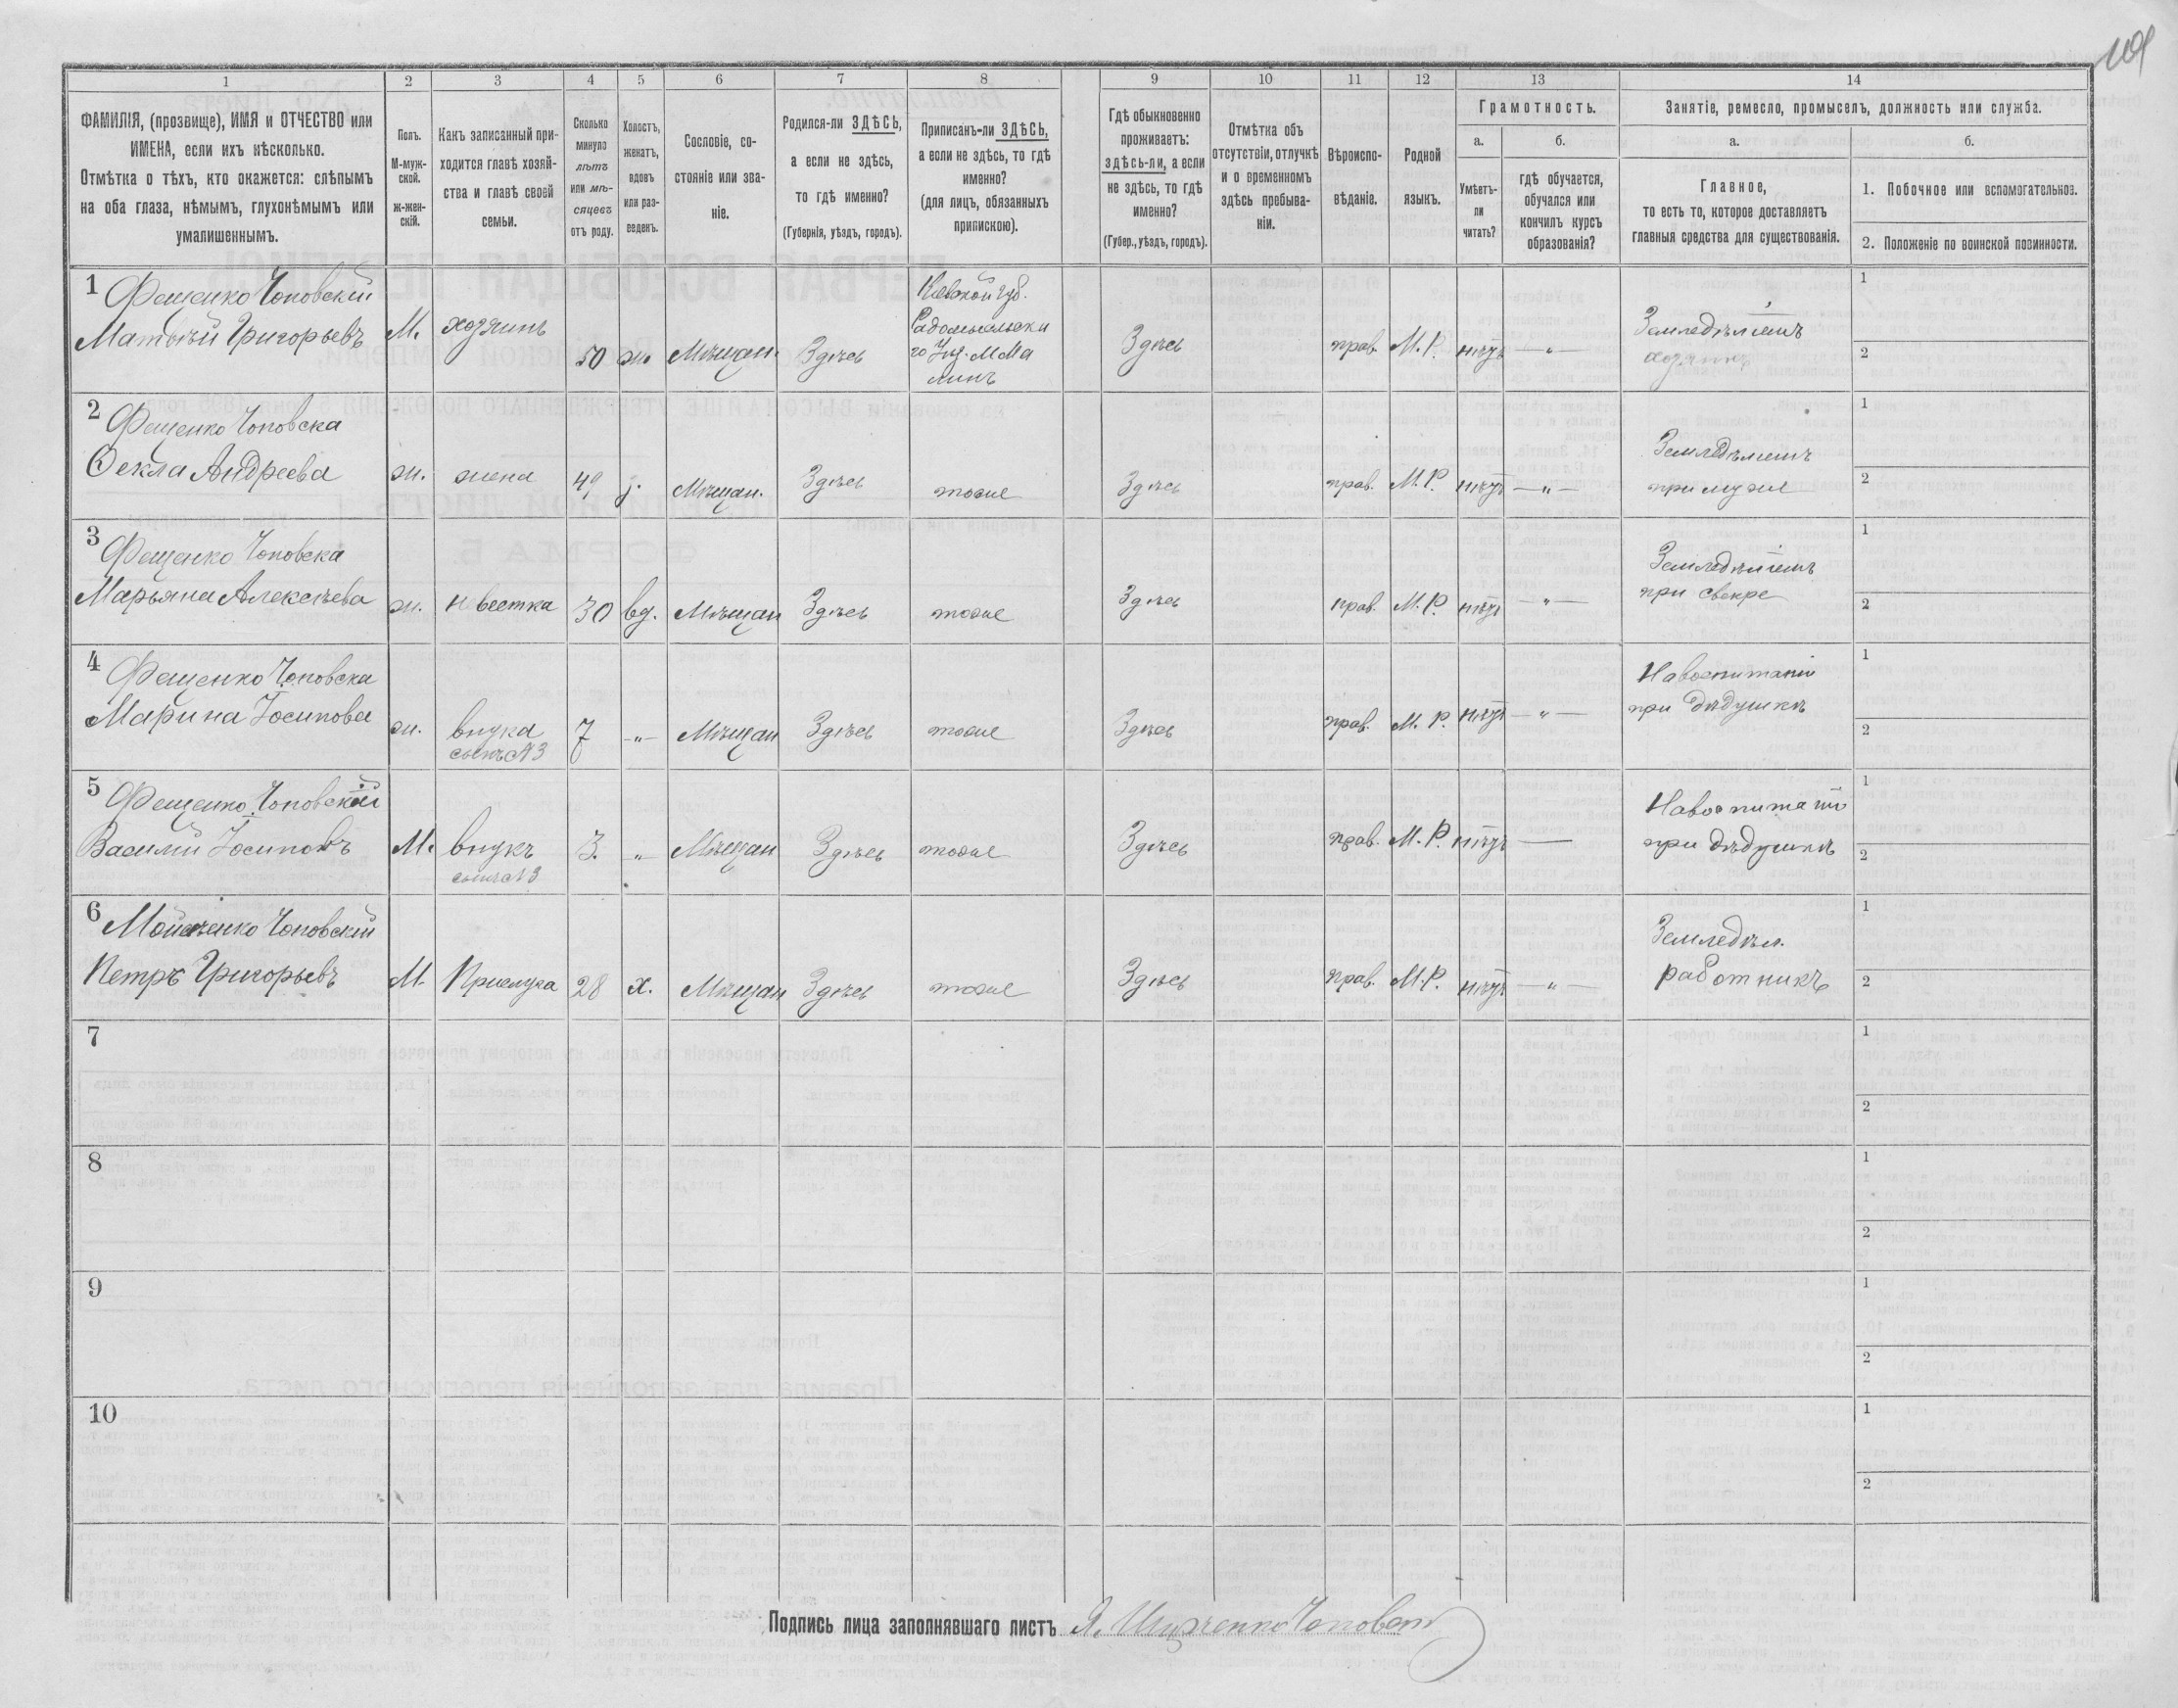 101
1 2 3 4 5 6 7 8 9 10 11 12 13 14
ФАМИЛІЯ, (прозвище), ИМЯ и ОТЧЕСТВО или
ИМЕНА, если ихъ нѣсколько.
Отмѣтка о тѣхъ, кто окажется: слѣпымъ
на оба глаза, нѣмымъ, глухонѣмымъ или
умалишеннымъ.
Полъ.
М-муж-
ской.
ж-жен-
скій.
Какъ записанный при-
ходится главѣ хозяй-
ства и главѣ своей
семьи.
Сколько
минуло
лѣтъ
или мѣ-
сяцевъ
отъ роду.
Холостъ,
женатъ,
вдовъ
или раз-
веденъ.
Сословіе, со-
стояніе или зва-
ніе.
Родился-ли ЗДѢСЬ,
а если не здѣсь,
то гдѣ именно?
(Губернія, уѣздъ, городъ).
Приписанъ-ли ЗДѢСЬ,
а если не здѣсь, то гдѣ
именно?
(для лицъ, обязанныхъ
припискою).
Гдѣ обыкновенно
проживаетъ:
здѣсь-ли, а если
не здѣсь, то гдѣ
именно?
(Губер., уѣздъ, городъ).
Отмѣтка объ
отсутствіи, отлучкѣ
и о временномъ
здѣсь пребыва-
ніи.
Вѣроиспо-
вѣданіе.
Родной
языкъ.
Грамотность.
а.
Умѣетъ-
ли
читать?
б.
гдѣ обучается,
обучался или
кончилъ курсъ
образованія?
Занятіе, ремесло, промыселъ, должность или служба.
а.
Главное,
то есть то, которое доставляетъ
главныя средства для существованія.
б.
1. Побочное или вспомогательное.
2. Положеніе по воинской повинности.
1 Фещенко Чоповскій
Матвѣй Григорьевъ
М.
хозяинъ
50
ж.
Мѣщан.
Здѣсь
Кіевской губ.
Радомысльска
го Уѣз. М Ма
линъ
Здѣсь
прав.
М.Р.
нѣтъ
—"—
Земледѣліемъ
хозяинъ
1
2
2 Фещенко Чоповска
Ѳекла Андреева
ж.
жена
49
з.
Мѣщан.
Здѣсь
тоже
Здѣсь
прав.
М.Р.
нѣтъ
—"—
Земледѣліемъ
при мужѣ
1
2
3 Фещенко Чоповска
Марьяна Алексѣева
ж.
невестка
30
вд.
Мѣщан
Здѣсь
тоже
Здѣсь
прав.
М.Р.
нѣтъ
—"—
Земледѣліемъ
при свекре
1
2
4 Фещенко Чоповска
Марина Іосипова
ж.
внука
7
—"—
Мѣщан
Здѣсь
тоже
Здѣсь
прав.
М.Р.
нѣтъ
—"—
На воспитаніи
при дѣдушкѣ
1
2
5 Фещенко Чоповскій
Василій Іосиповъ
М.
внукъ
3.
"
Мѣщан
Здѣсь
тоже
Здѣсь
прав.
М.Р.
нѣтъ
—
На воспитаніи
при дѣдушкѣ
1
2
6 Чоповскій
Петръ Григорьевъ
М.
Прислуга
28
х.
Мѣщан
Здѣсь
тоже
Здѣсь
прав.
М.Р.
нѣтъ
—"—
Земледѣл.
работникъ
1
2
7
1
2
8
1
2
9
1
2
10
1
2
Подпись лица заполнявшаго листъ